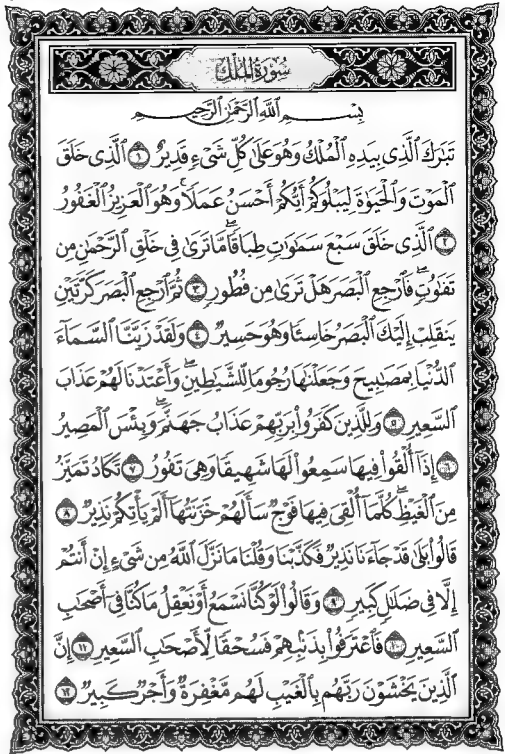 سُورَةُ المُلْكِ
بِسْمِ اللَّهِ الرَّحْمَٰنِ الرَّحِيمِ
تَبَٰرَكَ ٱلَّذِى بِيَدِهِ ٱلْمُلْكُ وَهُوَ عَلَىٰ كُلِّ شَىْءٍ قَدِيرٌ ١ ٱلَّذِى خَلَقَ
ٱلْمَوْتَ وَٱلْحَيَوٰةَ لِيَبْلُوَكُمْ أَيُّكُمْ أَحْسَنُ عَمَلًا ۚ وَهُوَ ٱلْعَزِيزُ ٱلْغَفُورُ
٢ ٱلَّذِى خَلَقَ سَبْعَ سَمَٰوَٰتٍ طِبَاقًا ۖ مَّا تَرَىٰ فِى خَلْقِ ٱلرَّحْمَٰنِ مِن
تَفَٰوُتٍ ۖ فَٱرْجِعِ ٱلْبَصَرَ هَلْ تَرَىٰ مِن فُطُورٍ ٣ ثُمَّ ٱرْجِعِ ٱلْبَصَرَ كَرَّتَيْنِ
يَنقَلِبْ إِلَيْكَ ٱلْبَصَرُ خَاسِئًا وَهُوَ حَسِيرٌ ٤ وَلَقَدْ زَيَّنَّا ٱلسَّمَآءَ
ٱلدُّنْيَا بِمَصَٰبِيحَ وَجَعَلْنَٰهَا رُجُومًا لِّلشَّيَٰطِينِ ۖ وَأَعْتَدْنَا لَهُمْ عَذَابَ
ٱلسَّعِيرِ ٥ وَلِلَّذِينَ كَفَرُوا۟ بِرَبِّهِمْ عَذَابُ جَهَنَّمَ ۖ وَبِئْسَ ٱلْمَصِيرُ
٦ إِذَآ أُلْقُوا۟ فِيهَا سَمِعُوا۟ لَهَا شَهِيقًا وَهِىَ تَفُورُ ٧ تَكَادُ تَمَيَّزُ
مِنَ ٱلْغَيْظِ ۖ كُلَّمَآ أُلْقِىَ فِيهَا فَوْجٌ سَأَلَهُمْ خَزَنَتُهَآ أَلَمْ يَأْتِكُمْ نَذِيرٌ ٨
قَالُوا۟ بَلَىٰ قَدْ جَآءَنَا نَذِيرٌ فَكَذَّبْنَا وَقُلْنَا مَا نَزَّلَ ٱللَّهُ مِن شَىْءٍ إِنْ أَنتُمْ
إِلَّا فِى ضَلَٰلٍ كَبِيرٍ ٩ وَقَالُوا۟ لَوْ كُنَّا نَسْمَعُ أَوْ نَعْقِلُ مَا كُنَّا فِىٓ أَصْحَٰبِ
ٱلسَّعِيرِ ١٠ فَٱعْتَرَفُوا۟ بِذَنۢبِهِمْ فَسُحْقًا لِّأَصْحَٰبِ ٱلسَّعِيرِ ١١ إِنَّ
ٱلَّذِينَ يَخْشَوْنَ رَبَّهُم بِٱلْغَيْبِ لَهُم مَّغْفِرَةٌ وَأَجْرٌ كَبِيرٌ ١٢